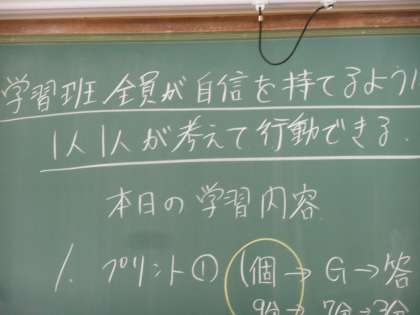 学習班全員が自信を持てるように
1人1人が考えて行動できる.
本日の学習内容
1. プリント① (個→G→答
9分→7分→3分